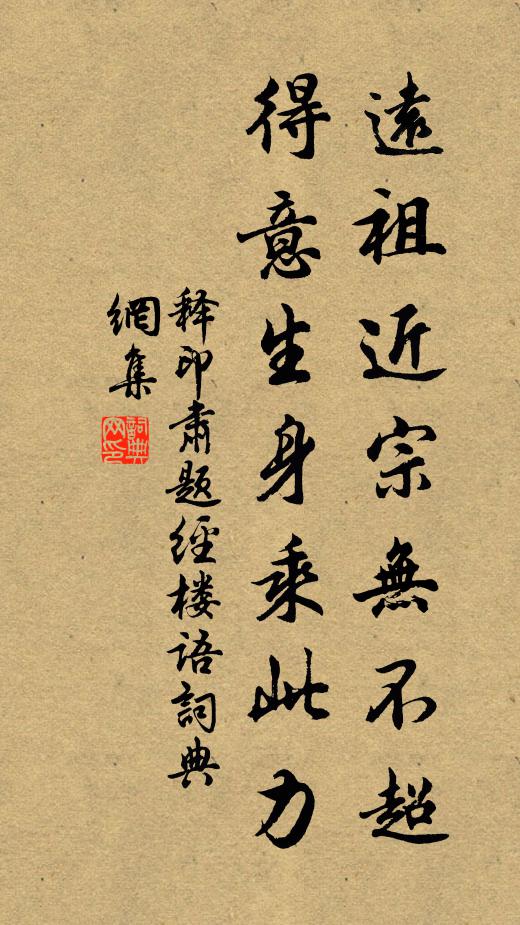 遠祖近宗無不超
得意生身乘此力
释印肅題經楼语詞典
網集
詞典網印